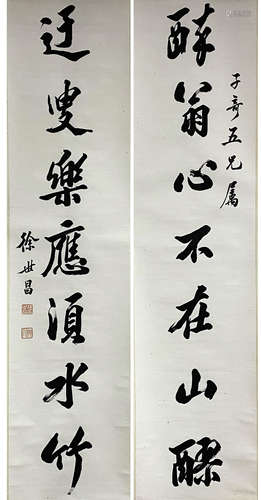 醉翁心不在山醪
子奇五兄屬
迂叟樂應須水竹
徐世昌